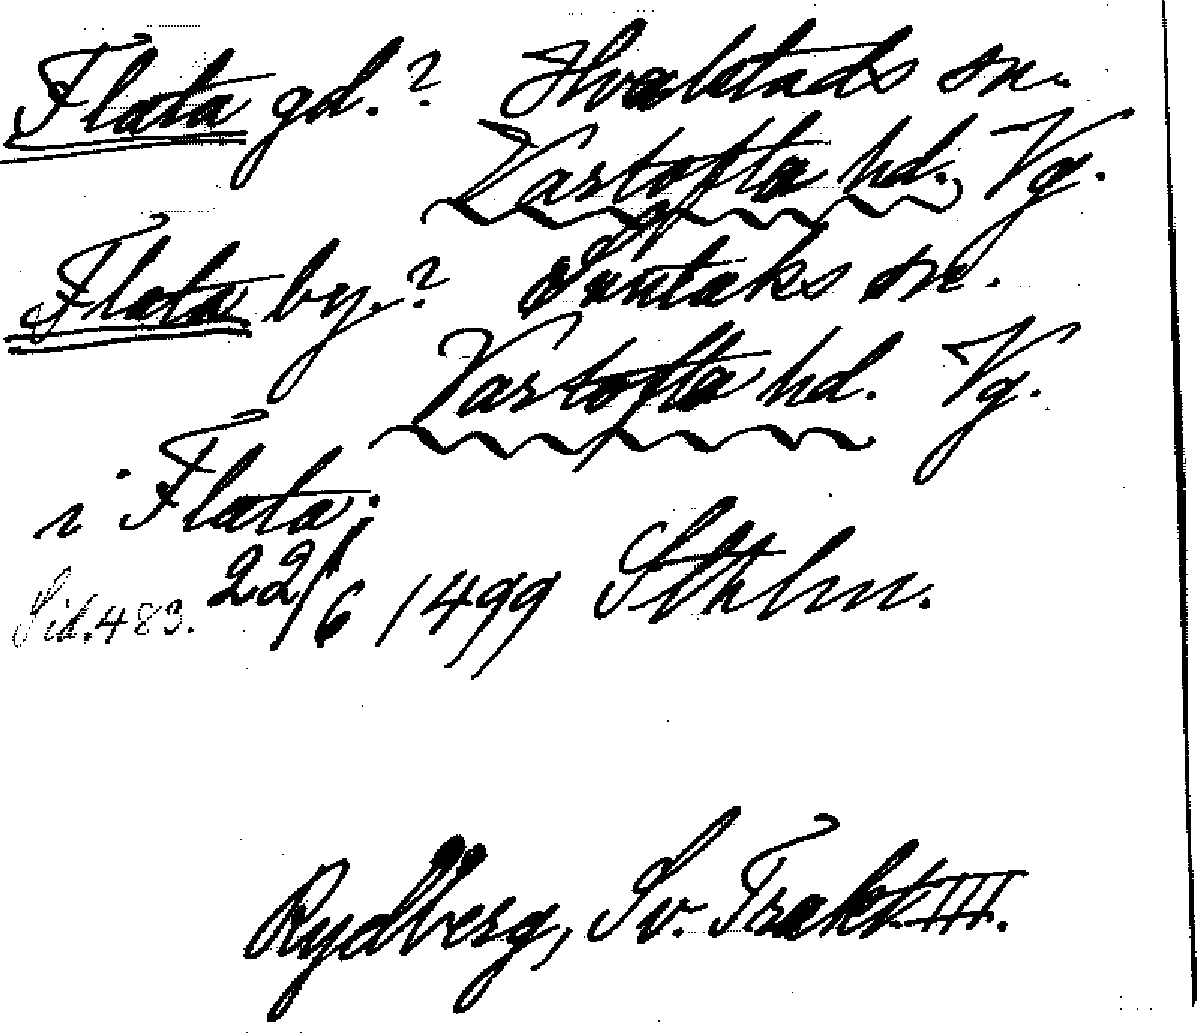 Flata gd.? Hvalstads sn.
Vartofta hd. Vg.
Flata by.? Suntaks sn.
Vartofta hd. Vg.
i Flata;
Sid. 483. 22/6 1499 Sthlm.
Rydberg, Sv. Trakt. III.